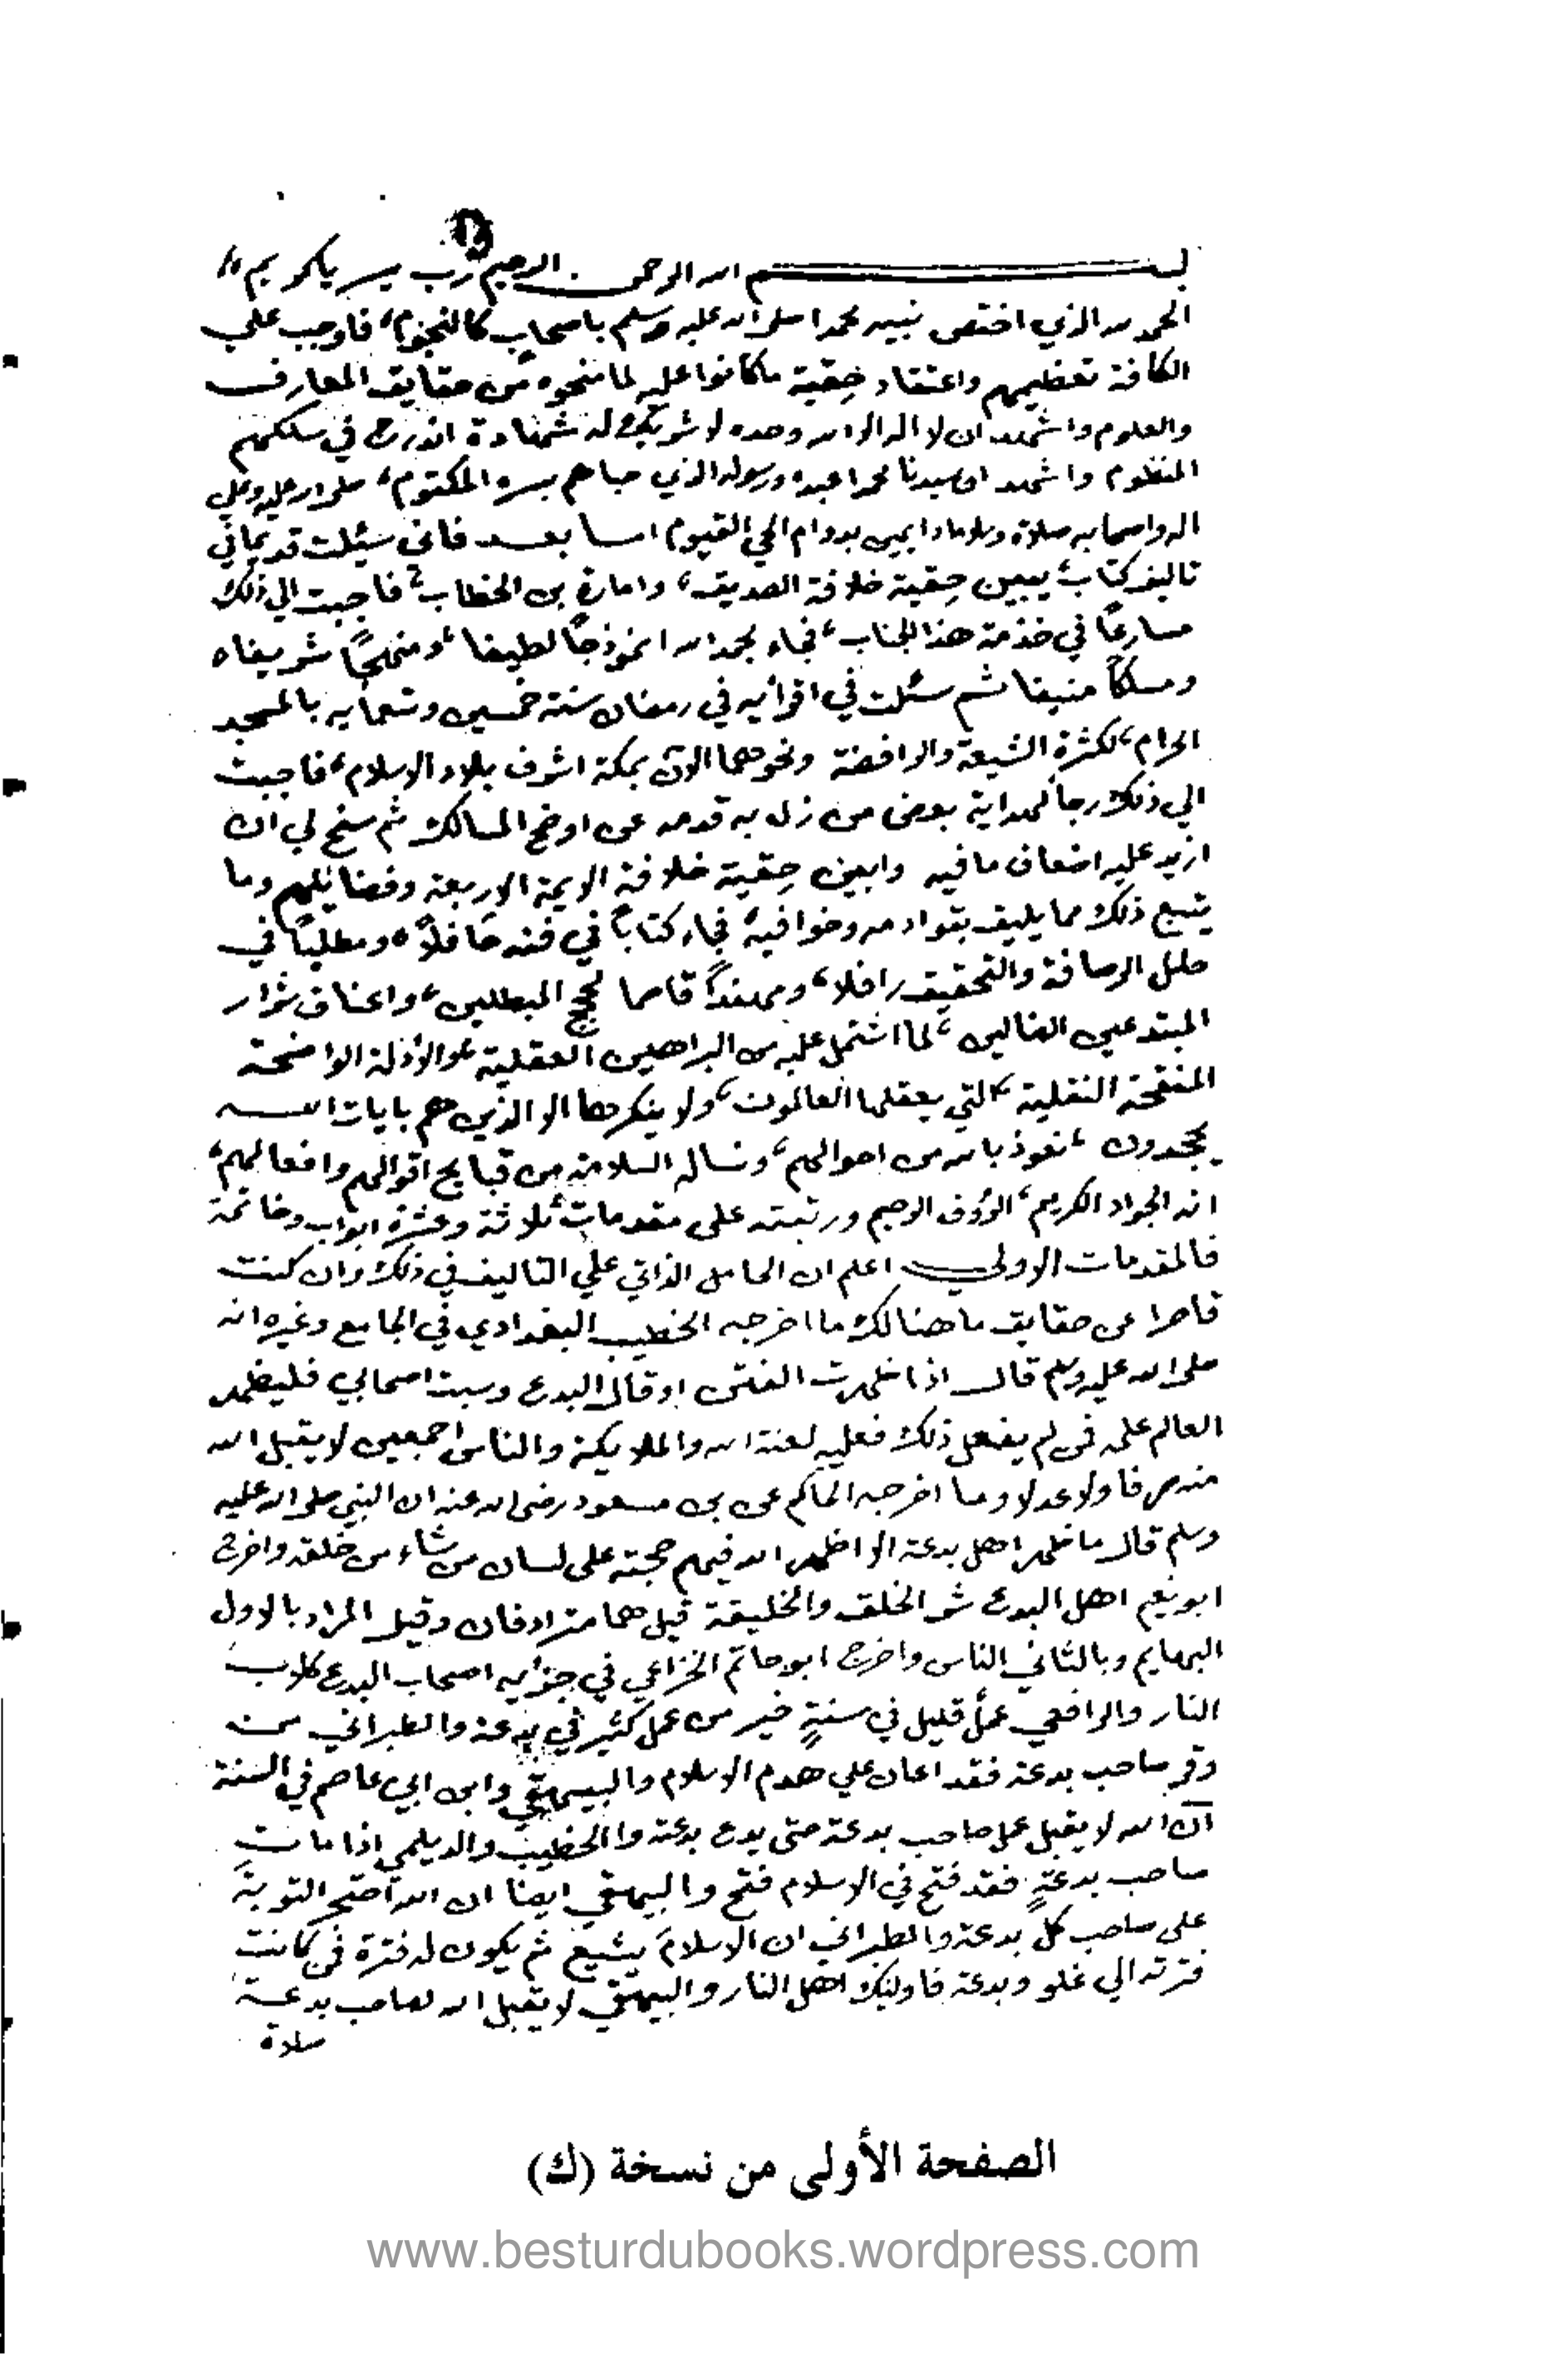 بسم الله الرحمن الرحيم رب يسر ياكريم
الحمد لله الذي اختص نبيه محمدا صلى الله عليه وسلم باصحاب كالنجوم، فاوجب علي
الكافة تعظيمهم واعتقاد حقية ماكانوا عليه لما منحوه من حقايق المعارف
والعلوم واشهد ان لا اله الا الله وحده لا شريك له شهادة اندرج في سلكهم
المنظوم واشهد ان سيدنا محمدا عبده ورسوله الذي حباهم بسره المكتوم، صلى الله عليه وعلي
اله واصحابه صلاة وسلاما دايمين بدوام الحي القيوم اما بعد فاني سئلت قديما في
تاليف كتاب يبين حقية خلافة الصديق، وامارة بن الخطاب، فاجبت الي ذلك
مسارعًا في خدمة هذا الجناب، فجاء بحمد الله انموذجًا لطيفا، ومنهجًا شريفاه
ومسلكًا منيفا ثم سئلت في اقرائه في رمضان سنة خمسين وتسعمايه بالمسجد
الحرام، لكثرة الشيعة والرافضة ونحوهما الان بمكة اشرف بلاد الاسلام، فاجبت
الي ذلك رجاً لهداية بعض من زل به قدمه عن اوضح المسالك ثم سنح لي ان
ازيد عليه اضعاف مافيه وابين حقية خلافة الايمة الاربعة وفضائلهم وما
يتبع ذلك مما يليق بقوادمه وخوافيه فجاء كتابًا في فنه حافلاً، ومطلبًا في
حلل الرصافة والتحقيق رافلا، ومهندًا قاصما لحجج المبطلين، واعناق شرار
المبتدعين الضالين، لما اشتمل عليه من البراهين العقلية، والأدلة الواضحة
المنقحة النقلية، التي يعقلها العالمون، ولا ينكرها الا الذين هم بايات الله
يجحدون، نعوذ بالله من احوالهم، ونساله السلامة من قبايح اقوالهم وافعالهم،
انه الجواد الكريم، الرؤف الرحيم ورتبته على مقدمات ثلاثة وعشرة ابواب وخاتمة
فالمقدمات الاولي اعلم ان الحامل الذاتي علي التاليف في ذلك وان كنت
قاصرا عن حقايق ما هنالك ما اخرجه الخطيب البغدادي في الجامع وغيره انه
صلى الله عليه وسلم قال اذا ظهرت الفتن او قال البدع وسبت اصحابي فليظهر
العالم علمه فمن لم يفعل ذلك فعليه لعنة الله والملايكة والناس اجمعين لا يقبل الله
منه صرفا ولا عدلا وما اخرجه الحاكم عن بن مسعود رضى الله عنه ان النبي صلى الله عليه
وسلم قال ما ظهر اهل بدعة الا اظهر الله فيهم حجته على لسان من شاء من خلقه واخرج
ابو نعيم اهل البدع شر الخلق والخليقة قيل هما مترادفان وقيل المراد بالاول
البهايم وبالثاني الناس واخرج ابو حاتم الخزاعي في جزئه اصحاب البدع كلاب
النار والرافعي عمل قليل في سنةٍ خير من عمل كثير في بدعة والطبراني من
وقر صاحب بدعة فقد اعان علي هدم الاسلام والبيهقي وابن ابي عاصم في السنة
ان الله لا يقبل عمل صاحب بدعة حتى يدع بدعته والخطيب والديلمي اذا مات
صاحب بدعةٍ فقد فتح في الاسلام فتح والبيهقي ايضا ان الله احتجر التوبة
على صاحب كل بدعة والطبراني ان الاسلام يشيع ثم يكون له فترة فمن كانت
فترته الي غلو وبدعة فاوليك اهل النار والبيهقي لا يقبل الله لصاحب بدعة
صلاة
الصفحة الأولى من نسخة (ك)
www.besturdubooks.wordpress.com